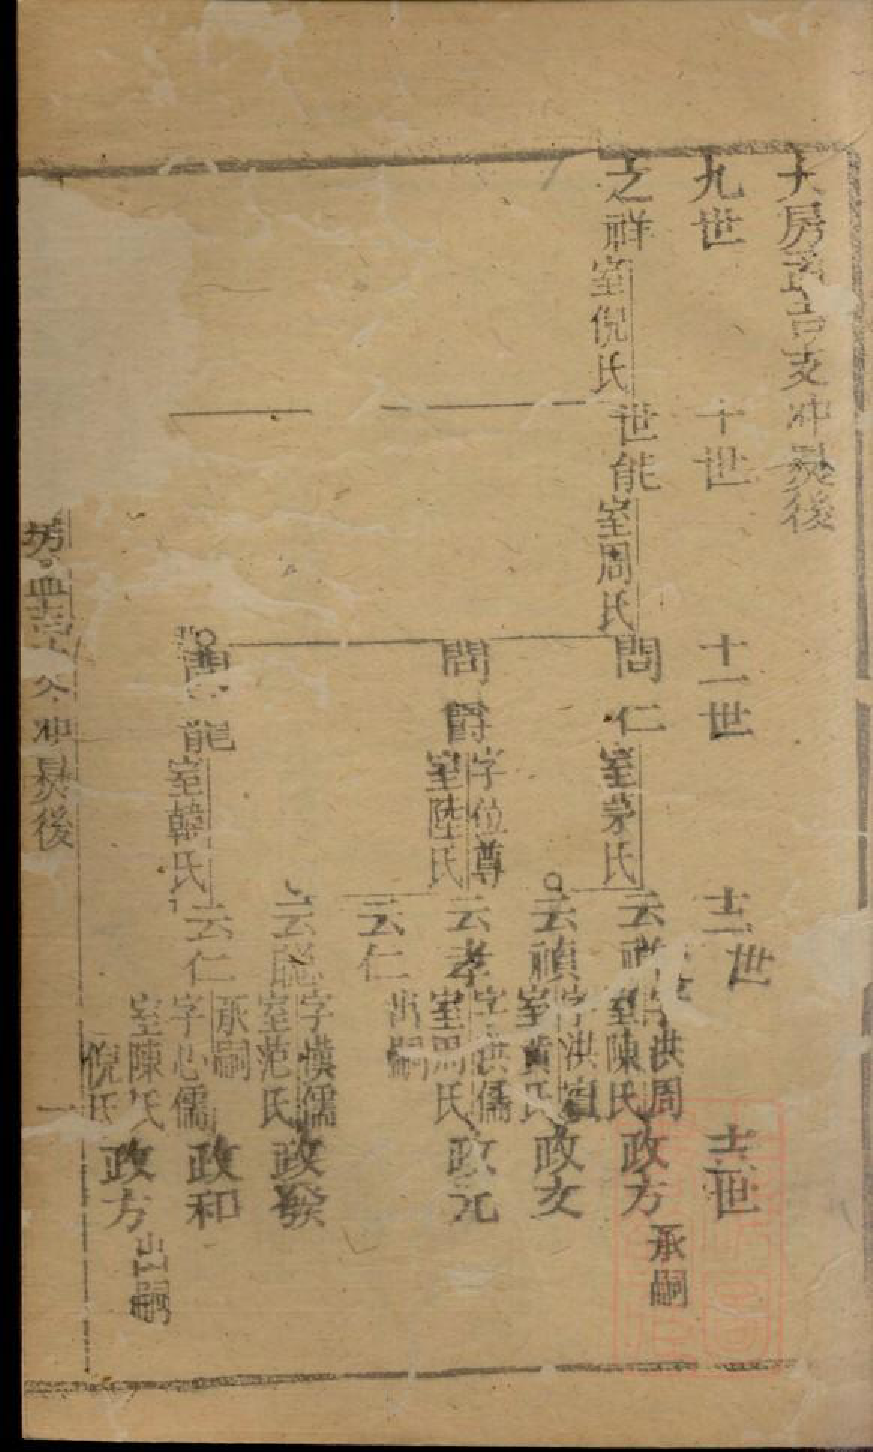 大房𠀤吉支冲炅後
九世
十世
十一世
十二世
十三世
之祥 室倪氏
世能 室周氏
問仁 室茅氏
云祥 字洪周 室陳氏
政方 承嗣
云禎 字洪 室黃氏
政文
問爵 字位尊 室陸氏
云孝 字洪儒 室周氏
政元
云仁 出嗣
云聰 字漢儒 室范氏
政發
問龍 室韓氏
云仁 承嗣 字心儒 室陳氏 倪氏
政和
政方 出嗣
冲炅後
一